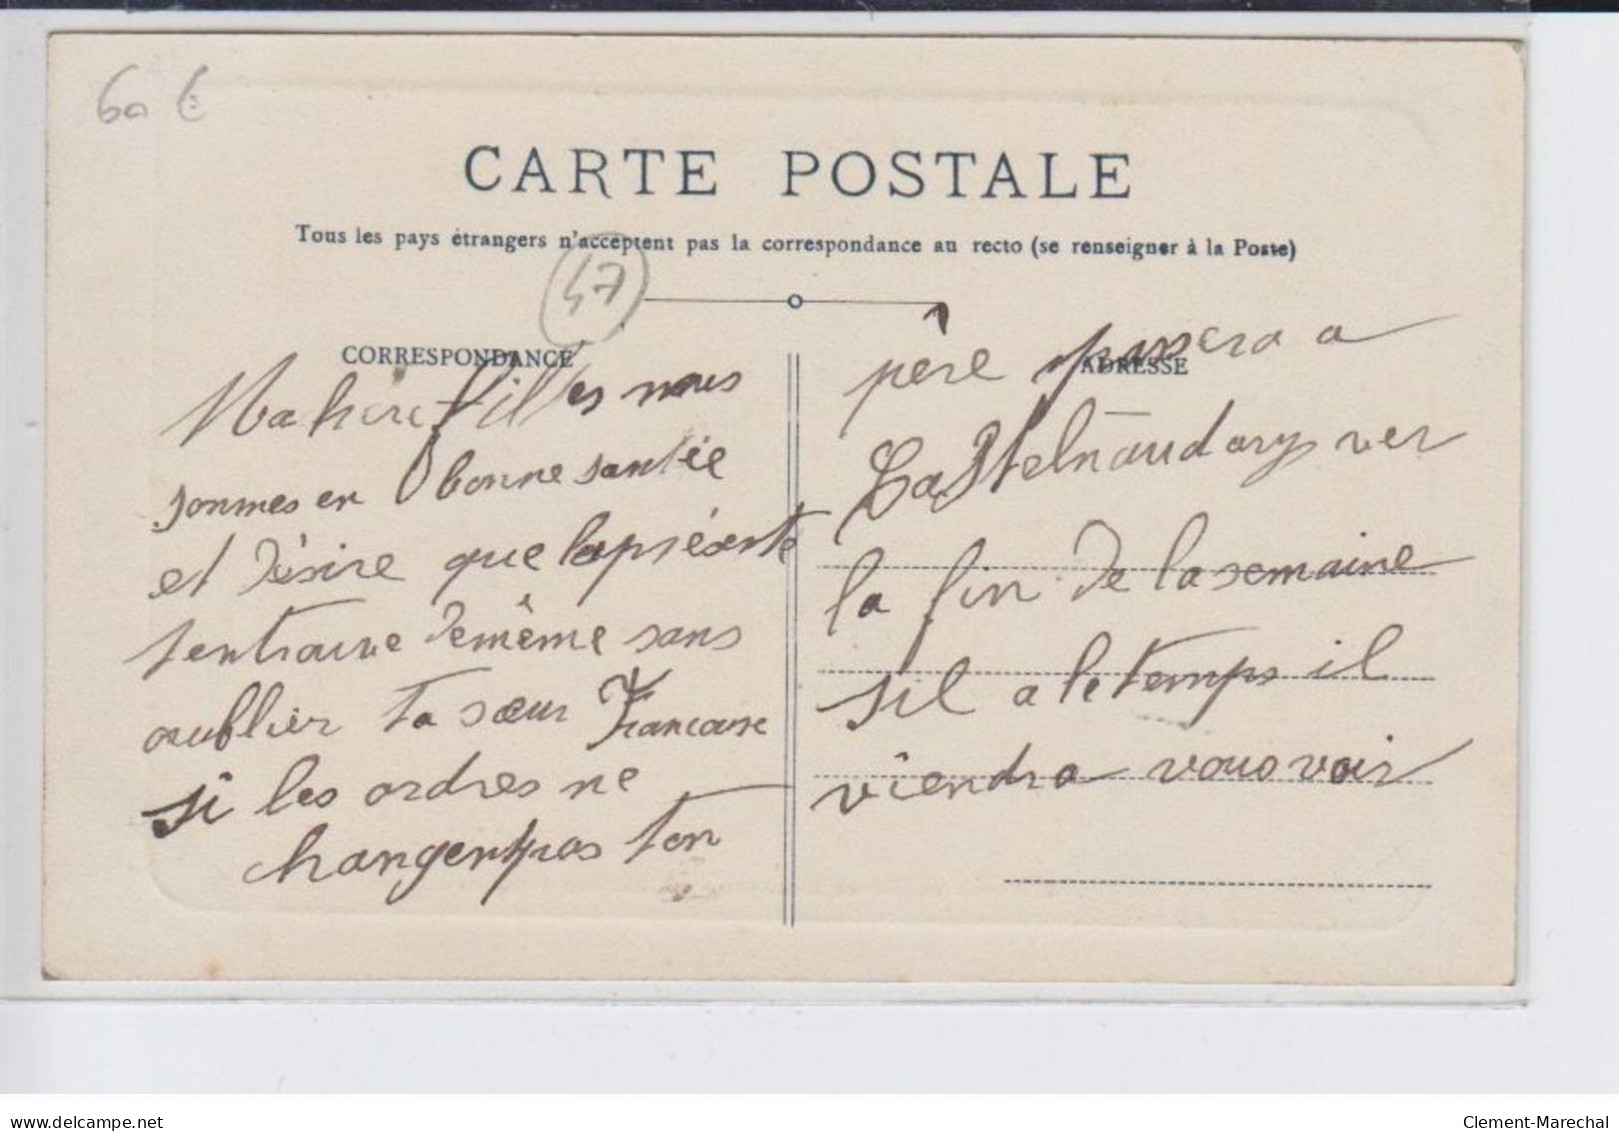 60 €
CARTE POSTALE
Tous les pays étrangers n'acceptent pas la correspondance au recto (se renseigner à la Poste)
47
CORRESPONDANCE
Ma chere filles nous
sommes en bonne santée
et désire que la présente
tentrouve de même sans
oublier ta sœur Francoise
si les ordres ne
changent pas ton
ADRESSE
père passera a
Castelnaudary ver
la fin de la semaine
sil a le temps il
viendra vous voir
delcampe.net
Clement-Marechal